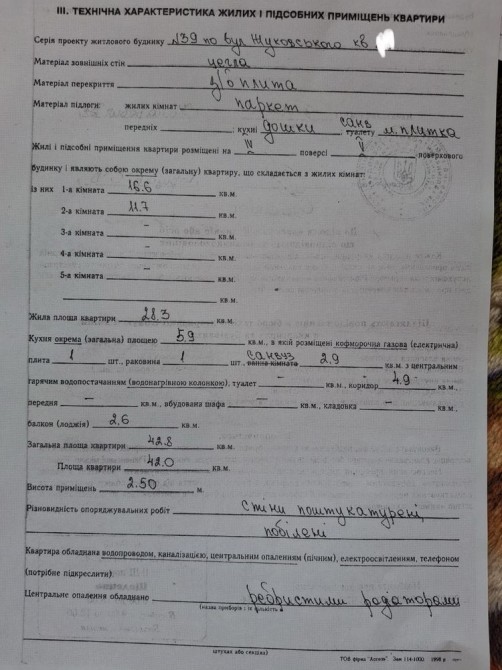 III. ТЕХНІЧНА ХАРАКТЕРИСТИКА ЖИЛИХ І ПІДСОБНИХ ПРИМІЩЕНЬ КВАРТИРИ
Серія проекту житлового будинку №39 по вул Жуковського кв
Матеріал зовнішніх стін цегла
Матеріал перекриття з/о плита
Матеріал підлоги: жилих кімнат паркет
передніх ; кухні дошки санв туалету м.плитка
Жилі і підсобні приміщення квартири розміщені на IV поверсі V поверхового
будинку і являють собою окрему (загальну) квартиру, що складається з жилих кімнат:
із них 1-а кімната 16.6 кв.м.
2-а кімната 11.7 кв.м.
3-а кімната – кв.м.
4-а кімната – кв.м.
5-а кімната – кв.м.
кв.м.
Жила площа квартири 28.3 кв.м.
Кухня окрема (загальна) площею 5.9 кв.м., в якій розміщені кофморочна газова (електрична)
плита 1 шт., раковина 1 шт. санвуз ванна кімната 2.9 кв.м. з центральним
гарячим водопостачанням (водонагрівною колонкою), туалет – кв.м., коридор 4.9 кв.м.,
передня – кв.м., вбудована шафа – кв.м., кладовка – кв.м.,
балкон (лоджія) 2.6 кв.м.
Загальна площа квартири 42.8 кв.м.
Площа квартири 42.0 кв.м.
Висота приміщень 2.50 м.
Різновидність опоряджувальних робіт стіни поштукатурені,
побілені
Квартира обладнана водопроводом, каналізацією, центральним опаленням (пічним), електроосвітленням, телефоном
(потрібне підкреслити).
Центральне опалення обладнано ребристими радіаторами
(назва приборів і їх кількість
штуках або секціях)
ТОВ фірма "Ахтам". Зам 114-1000. 1998 р